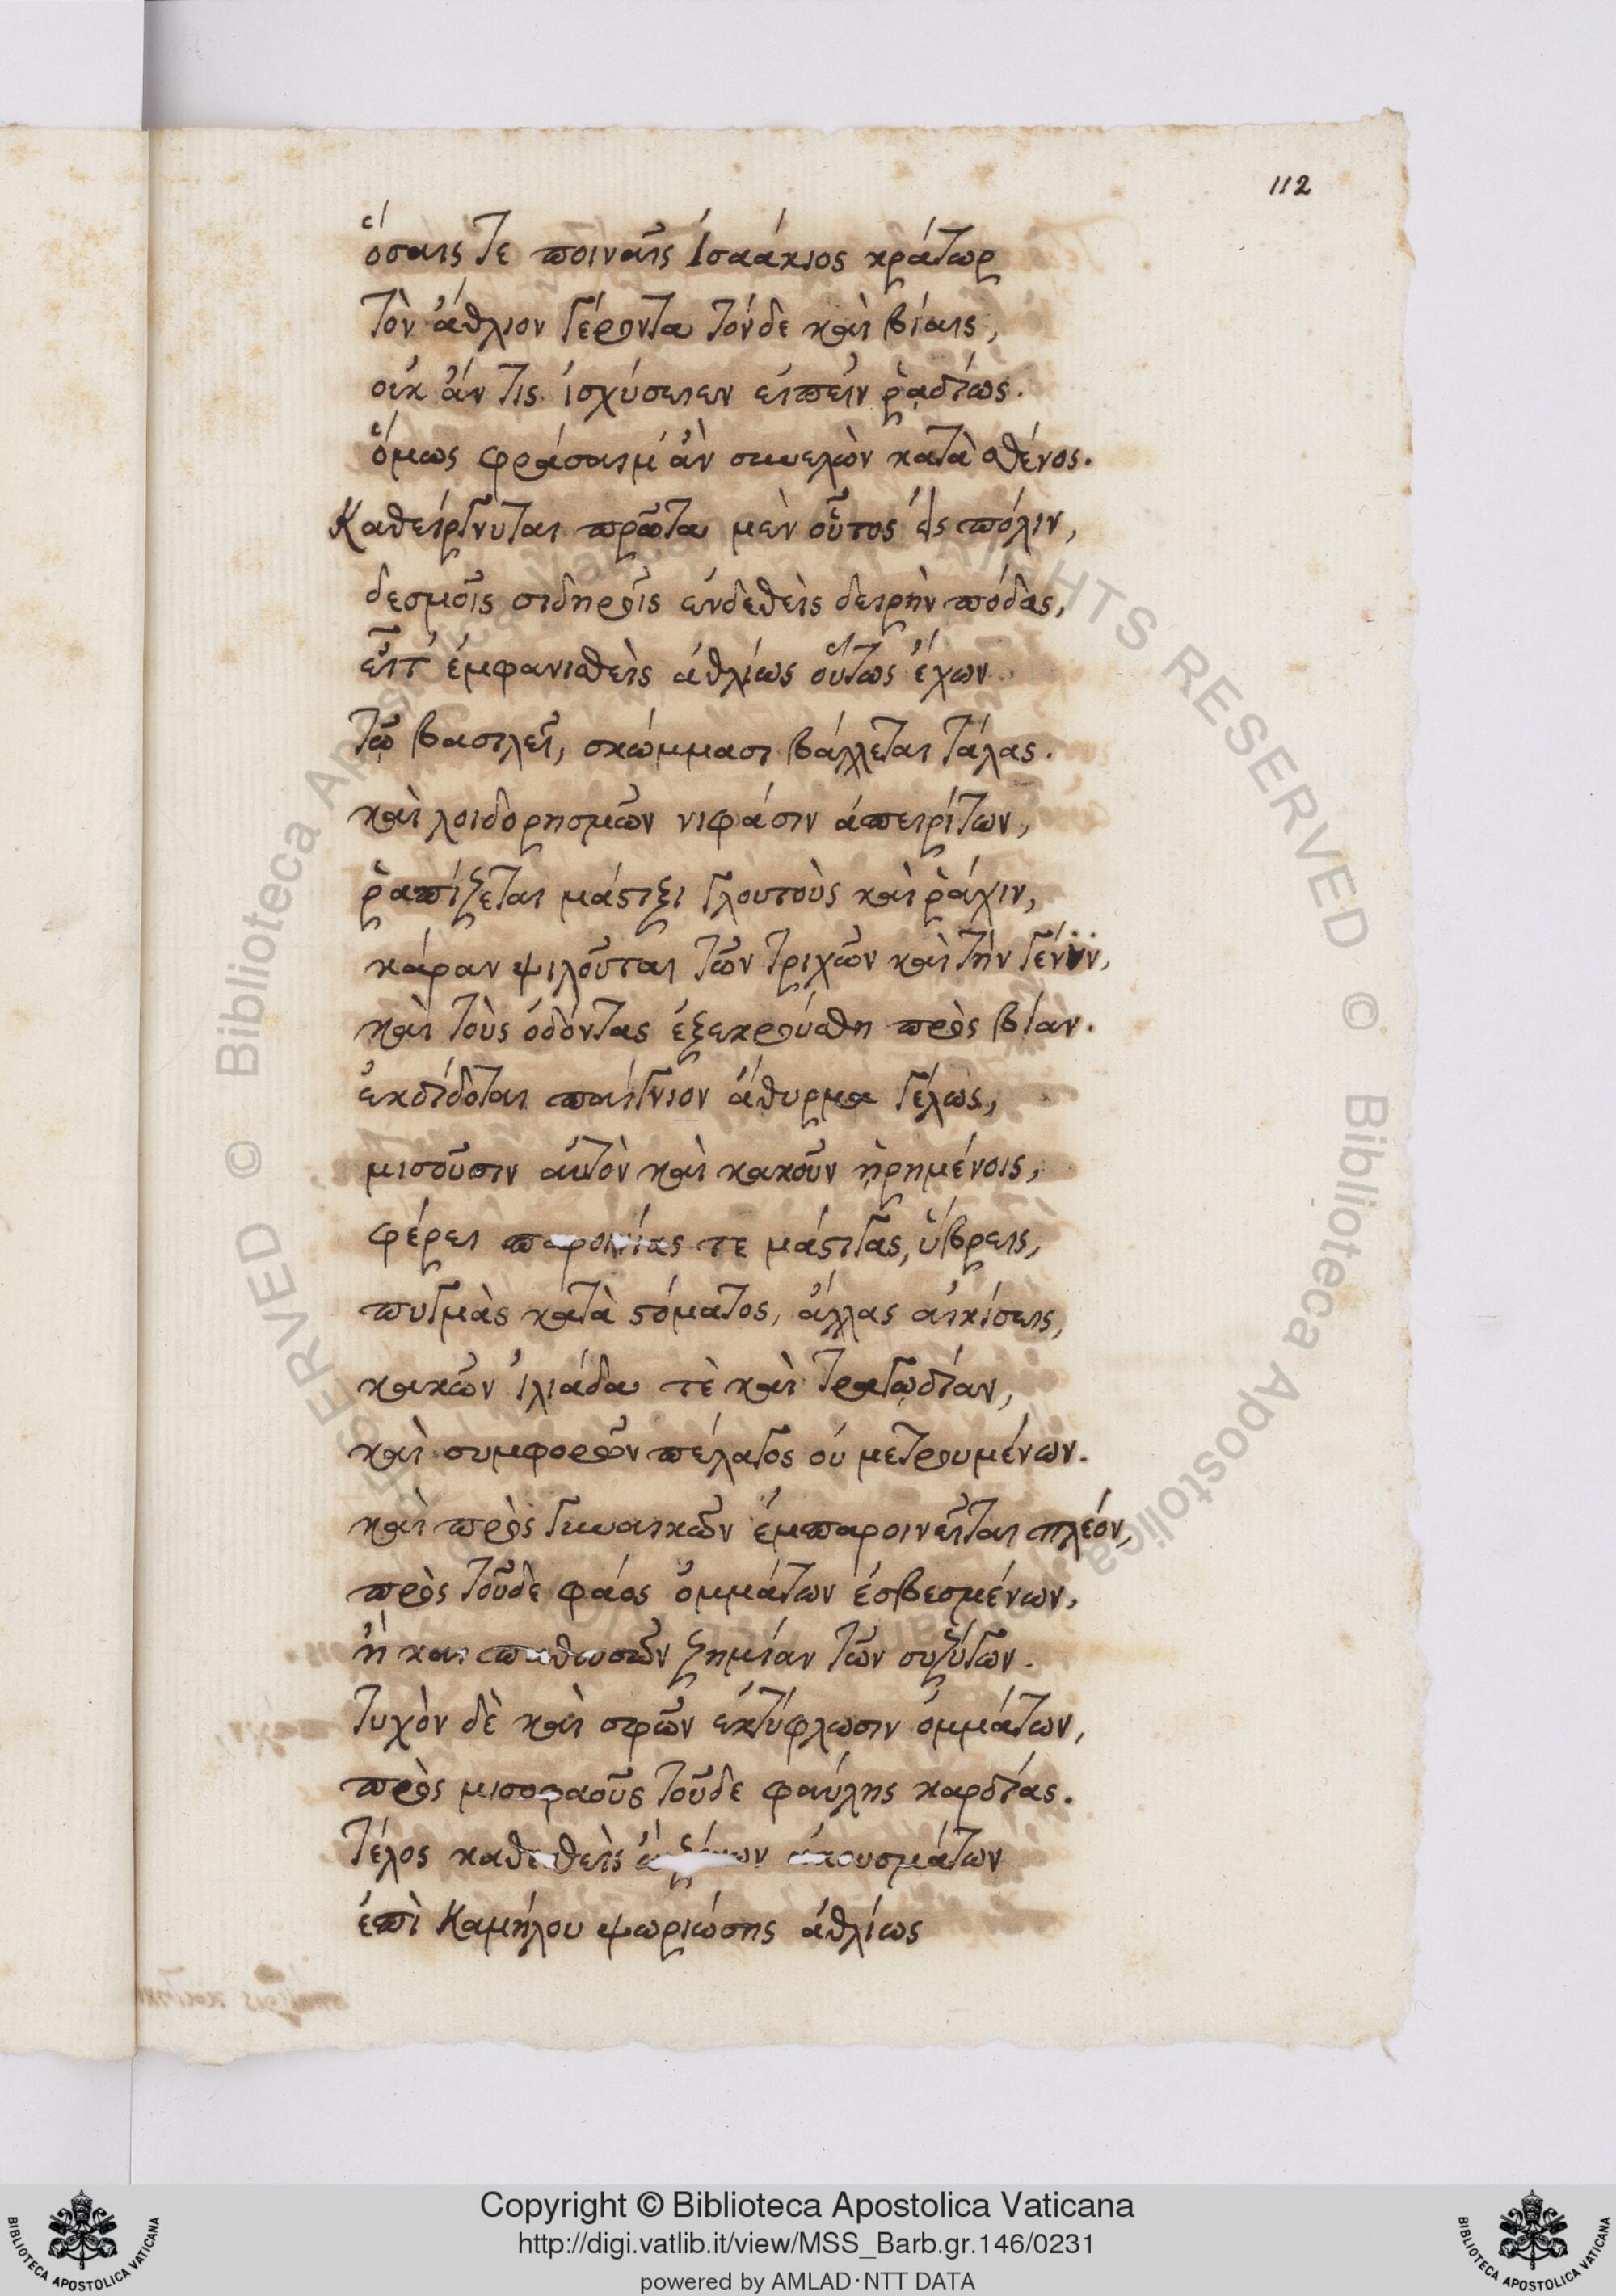 112
ὅσαις τε ποιναῖς ἰσαάκιος κράτωρ
τὸν ἄθλιον γέροντα τόνδε καὶ βίαις,
οὐκ ἄν τις ἰσχύσειεν εἰπεῖν ῥᾳδίως.
ὅμως φράσαιμ' ἂν συνελὼν κατὰ σθένος.
Καθείργνυται πρῶτα μὲν οὗτος εἰς πόλιν,
δεσμοῖς σιδηροῖς ἐνδεθεὶς δειρὴν πόδας,
εἶτ' ἐμφανισθεὶς ἀθλίως οὕτως ἔχων
τῷ βασιλεῖ, σκώμμασι βάλλεται τάλας.
καὶ λοιδορησμῶν νιφάσιν ἀπειρίτων,
ῥαπίζεται μάστιξι γλουτοὺς καὶ ῥάχιν,
κάραν ψιλοῦται τῶν τριχῶν καὶ τὴν γένυν,
καὶ τοὺς ὀδόντας ἐξεκρούσθη πρὸς βίαν.
ἐκδίδοται παίγνιον ἄθυρμα γέλως,
μισοῦσιν αὐτὸν καὶ κακοῦν ᾑρημένοις,
φέρει παροινίας τε μάστιγας, ὕβρεις,
πυγμὰς κατὰ στόματος, ἄλλας αἰκίσεις,
κακῶν ἰλιάδα τὲ καὶ τραγῳδίαν,
καὶ συμφορῶν πέλαγος οὐ μετρουμένων.
καὶ πρὸς γυναικῶν ἐμπαροινεῖται πλέον,
πρὸς τοῦδε φάος ὀμμάτων ἐσβεσμένων,
ἢ καὶ παθουσῶν ζημίαν τῶν συζύγων.
τυχὸν δὲ καὶ σφῶν ἐκτύφλωσιν ὀμμάτων,
πρὸς μισοφαοῦς τοῦδε φαύλης καρδίας.
τέλος καθεσθεὶς ἀκουσμάτων
ἐπὶ Καμήλου ψωριώσης ἀθλίως
© Biblioteca Apostolica Vaticana ALL RIGHTS RESERVED
Copyright © Biblioteca Apostolica Vaticana
http://digi.vatlib.it/view/MSS_Barb.gr.146/0231
powered by AMLAD·NTT DATA
BIBLIOTECA APOSTOLICA VATICANA
BIBLIOTECA APOSTOLICA VATICANA